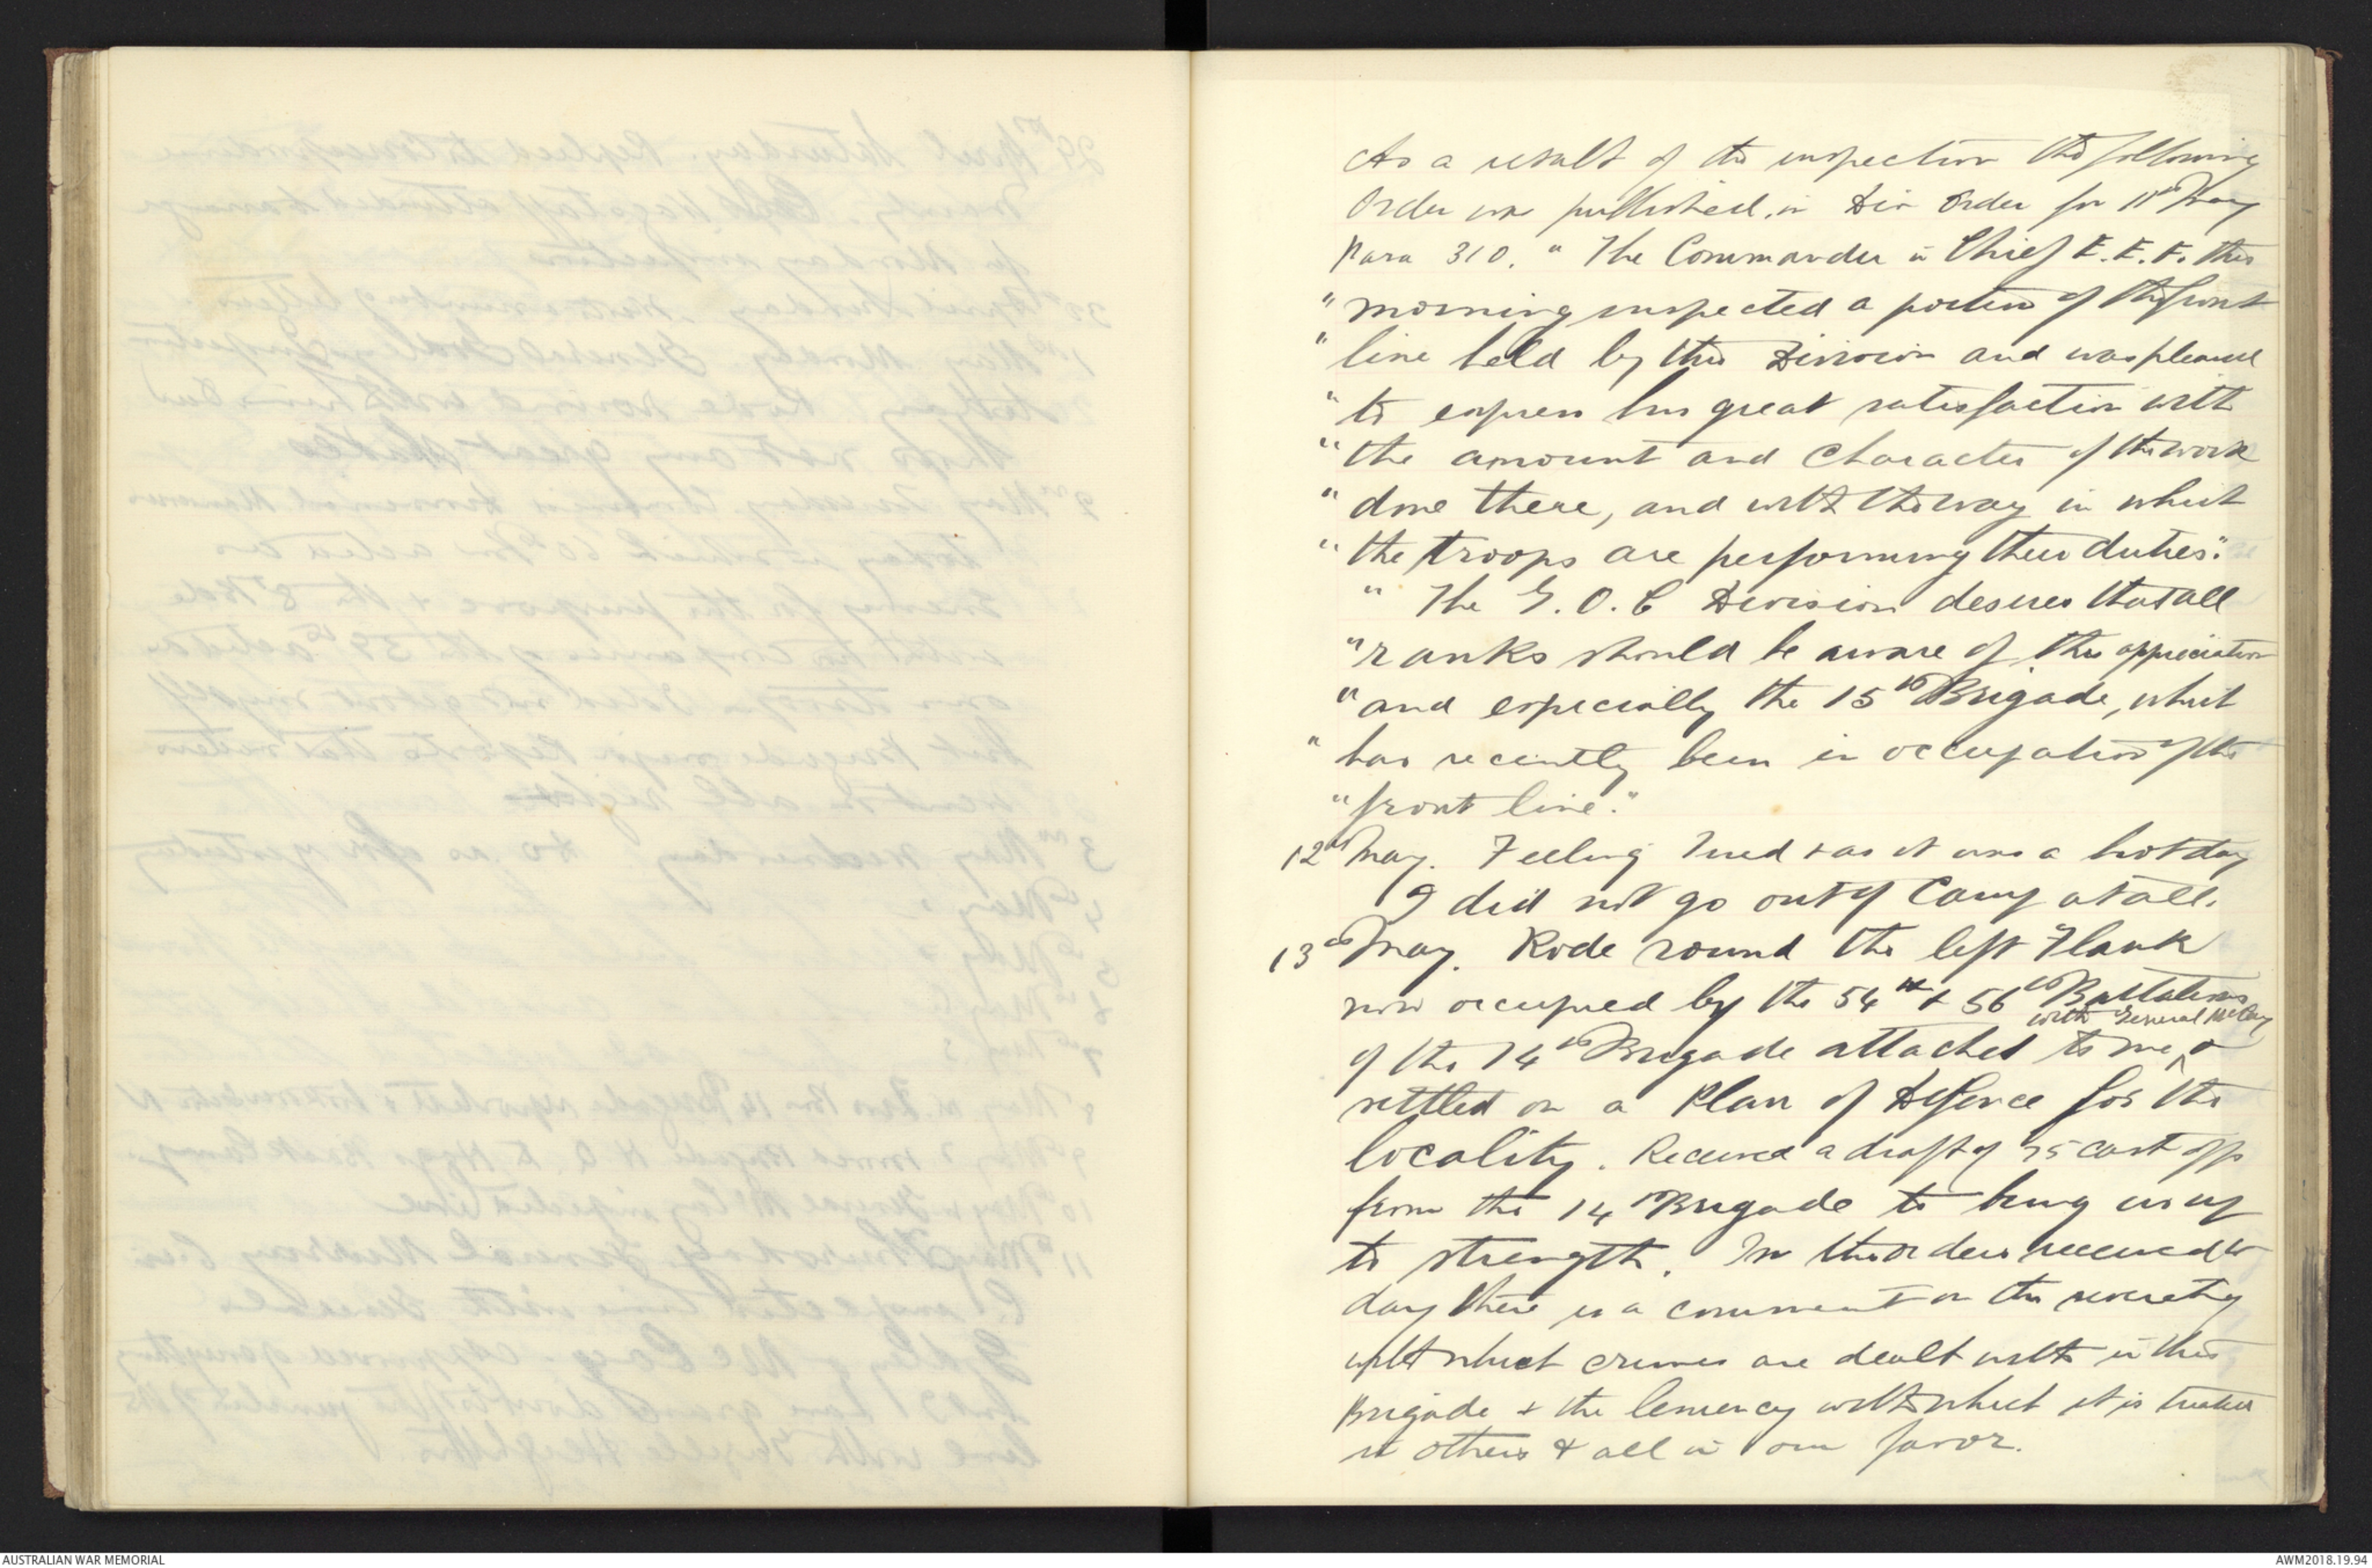 As a result of the inspection the following
Order was published in Div Order for 11th May
Para 310. " The Commander in Chief E.E.F. this
" morning inspected a portion of the front
" line held by this Division and was pleased
" to express his great satisfaction with
" the amount and character of the work
" done there, and with the way in which
" the troops are performing their duties."
" The G.O.C Division desires that all
" ranks should be aware of this appreciation
" and especially the 15th Brigade, which
" has recently been in occupation of the
" front line."
12th May. Feeling tired & as it was a hot day
I did not go out of Camp at all.
13th May. Rode round the left Flank
now occupied by the 54th & 56th Battalions
with General McCay
of the 14th Brigade attached to me ^ &
settled on a Plan of Defence for the
locality. Received a draft of cast offs
from the 14 Brigade to bring us up
to strength. In the orders received to
day there is a comment on the severity
with which crimes are dealt with in this
Brigade & the leniency with which it is treated
in others & all in our favor.
AUSTRALIAN WAR MEMORIAL
AWM2018.19.94